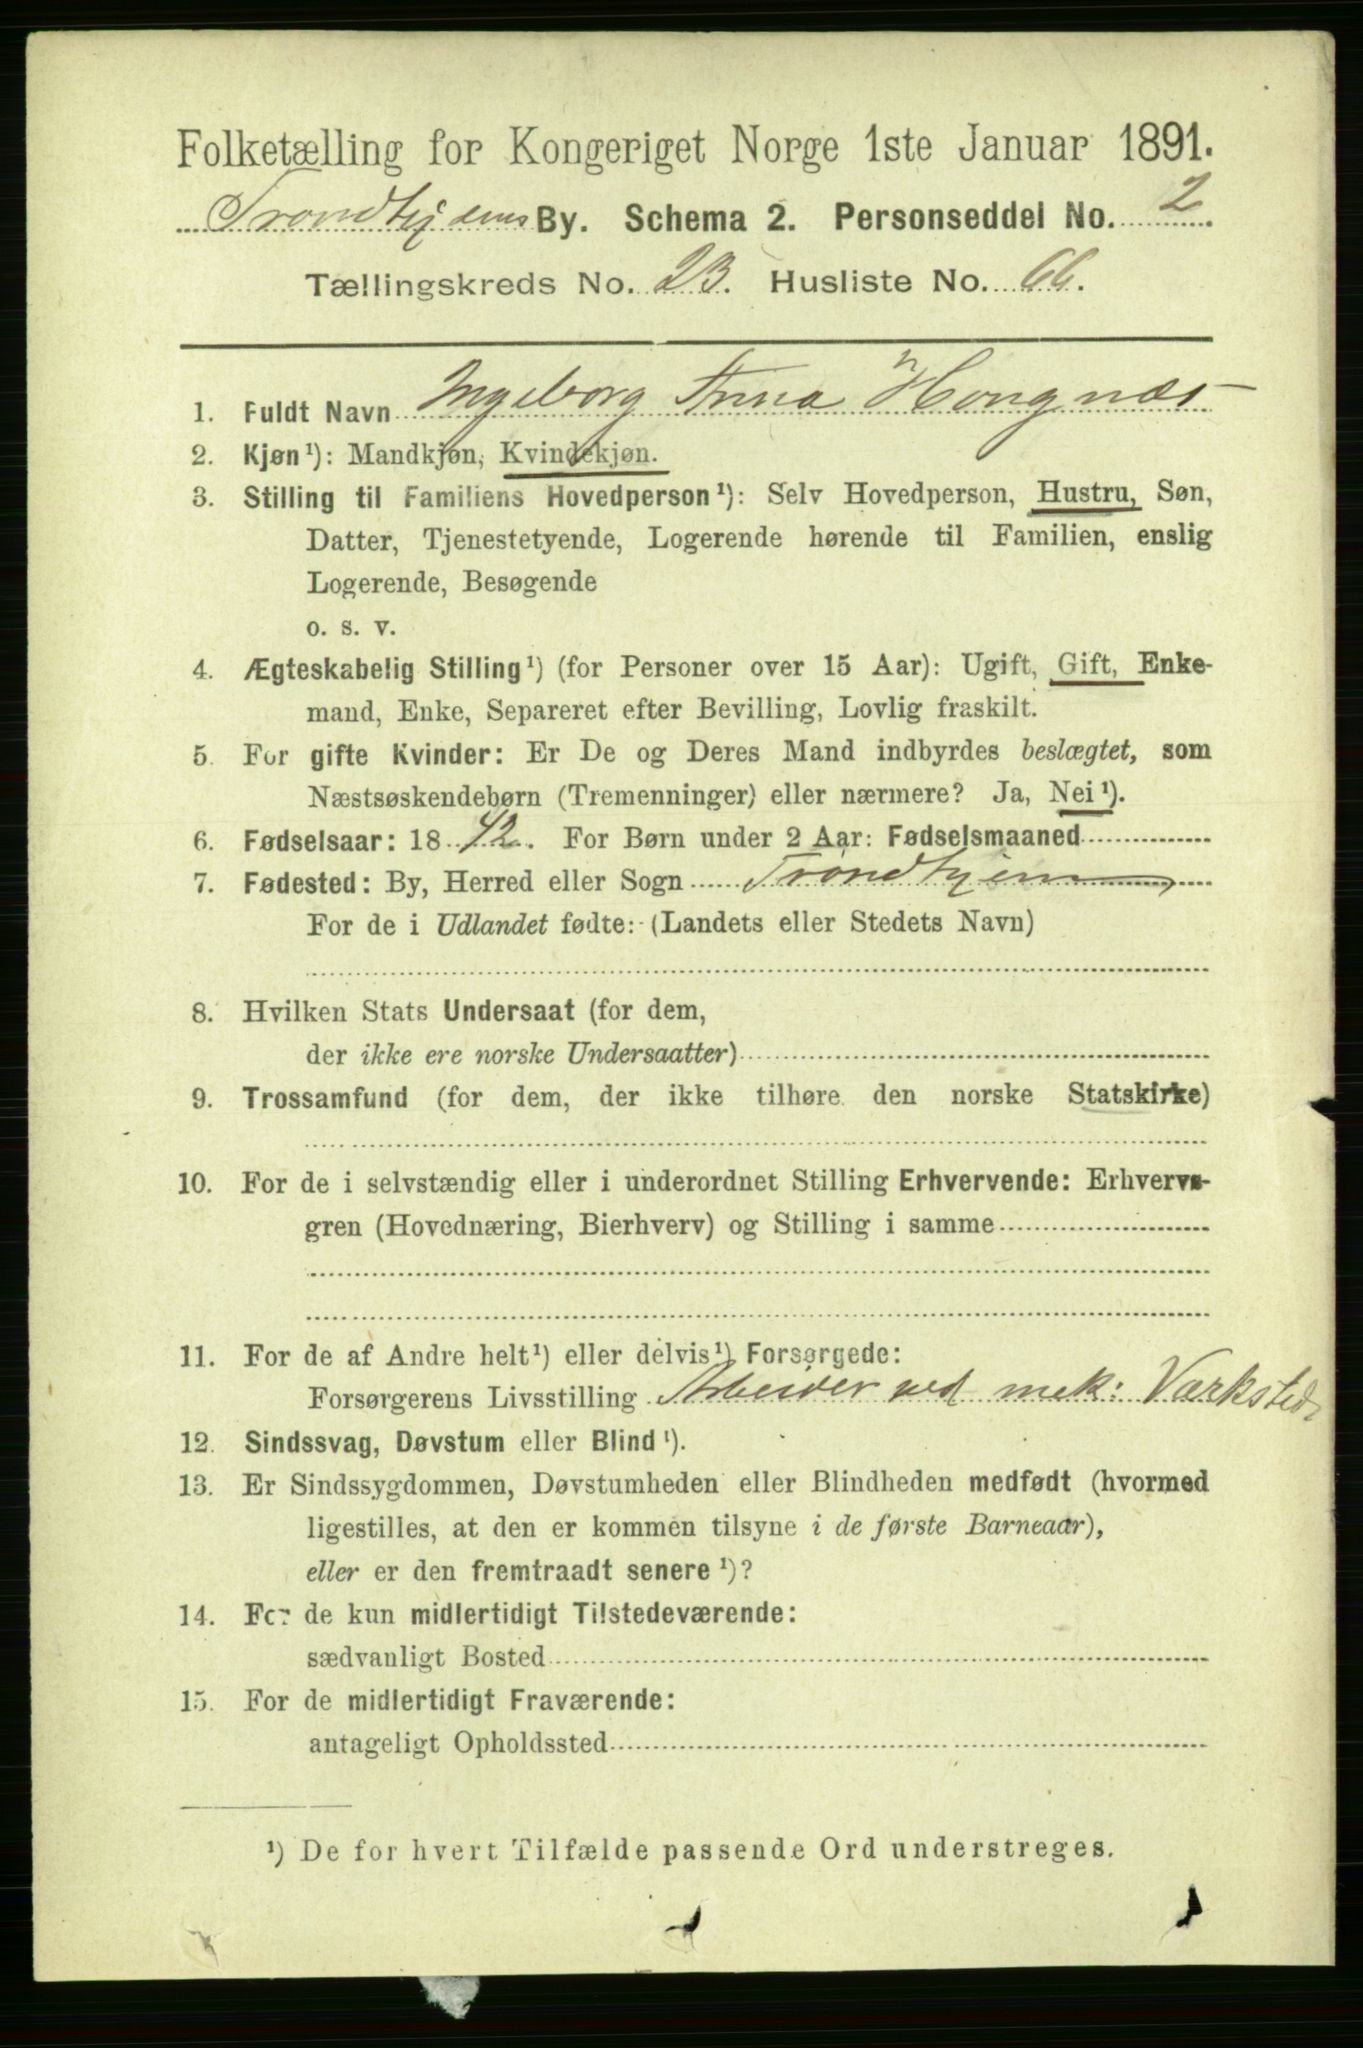 Folketælling for Kongeriget Norge 1ste Januar 1891.
Trondhjems By. Schema 2. Personseddel No. 2.
Tællingskreds No. 23. Husliste No. 66.
1. Fuldt Navn Ingeborg Anna Hongnæs
2. Kjøn¹): Mandkjøn, Kvindekjøn.
3. Stilling til Familiens Hovedperson¹): Selv Hovedperson, Hustru, Søn,
Datter, Tjenestetyende, Logerende hørende til Familien, enslig
Logerende, Besøgende
o. s. v.
4. Ægteskabelig Stilling¹) (for Personer over 15 Aar): Ugift, Gift, Enke-
mand, Enke, Separeret efter Bevilling, Lovlig fraskilt.
5. For gifte Kvinder: Er De og Deres Mand indbyrdes beslægtet, som
Næstsøskendebørn (Tremenninger) eller nærmere? Ja, Nei¹).
6. Fødselsaar: 1842. For Børn under 2 Aar: Fødselsmaaned
7. Fødested: By, Herred eller Sogn Trondhjem
For de i Udlandet fødte: (Landets eller Stedets Navn)
8. Hvilken Stats Undersaat (for dem,
der ikke ere norske Undersaatter)
9. Trossamfund (for dem, der ikke tilhøre den norske Statskirke)
10. For de i selvstændig eller i underordnet Stilling Erhvervende: Erhvervs-
gren (Hovednæring, Bierhverv) og Stilling i samme
11. For de af Andre helt¹) eller delvis¹) Forsørgede:
Forsørgerens Livsstilling Arbeider ved mek: Værksted
12. Sindssvag, Døvstum eller Blind¹).
13. Er Sindssygdommen, Døvstumheden eller Blindheden medfødt (hvormed
ligestilles, at den er kommen tilsyne i de første Barneaar),
eller er den fremtraadt senere¹)?
14. For de kun midlertidigt Tilstedeværende:
sædvanligt Bosted
15. For de midlertidigt Fraværende:
antageligt Opholdssted
¹) De for hvert Tilfælde passende Ord understreges.